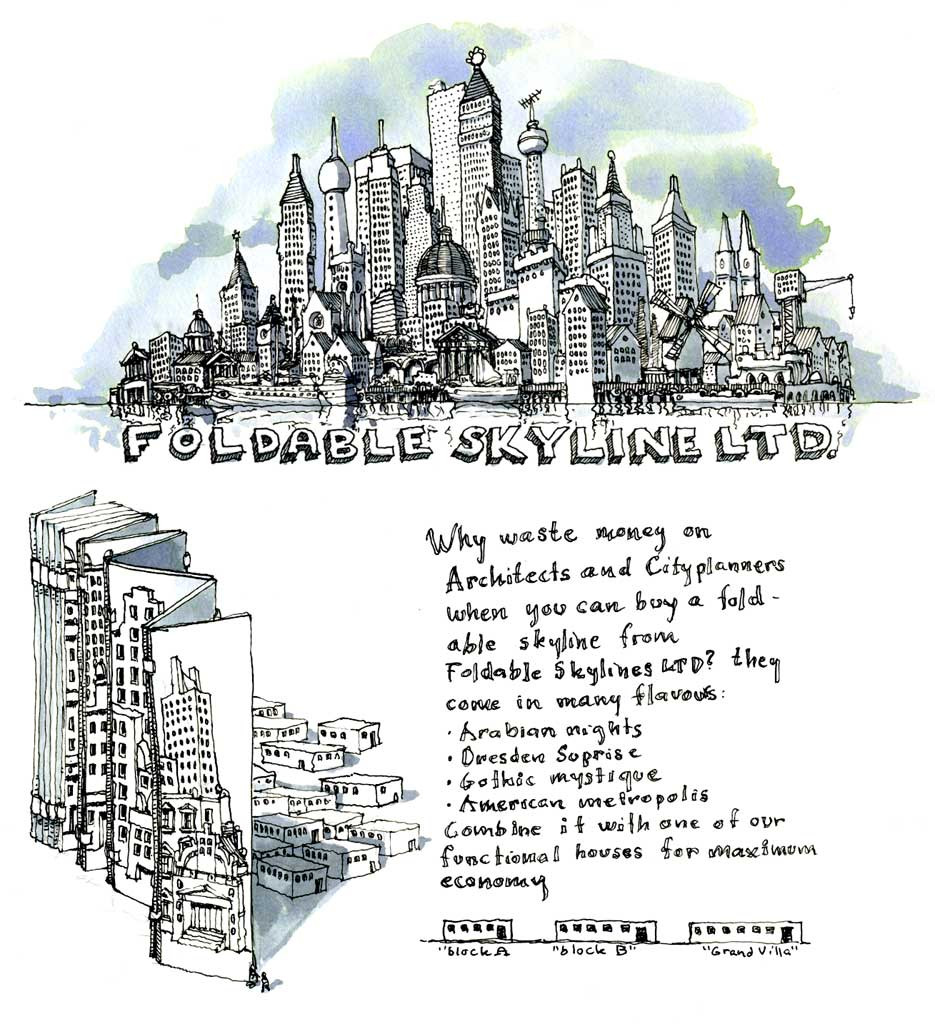 FOLDABLE SKYLINE LTD.
Why waste money on
Architects and Cityplanners
when you can buy a fold-
able skyline from
Foldable Skylines LTD? they
come in many flavous:
· Arabian nights
· Dresden Soprise
· Gothic mystique
· American metropolis
Combine it with one of our
functional houses for maximum
economy
"block A "block B" "Grand Villa"